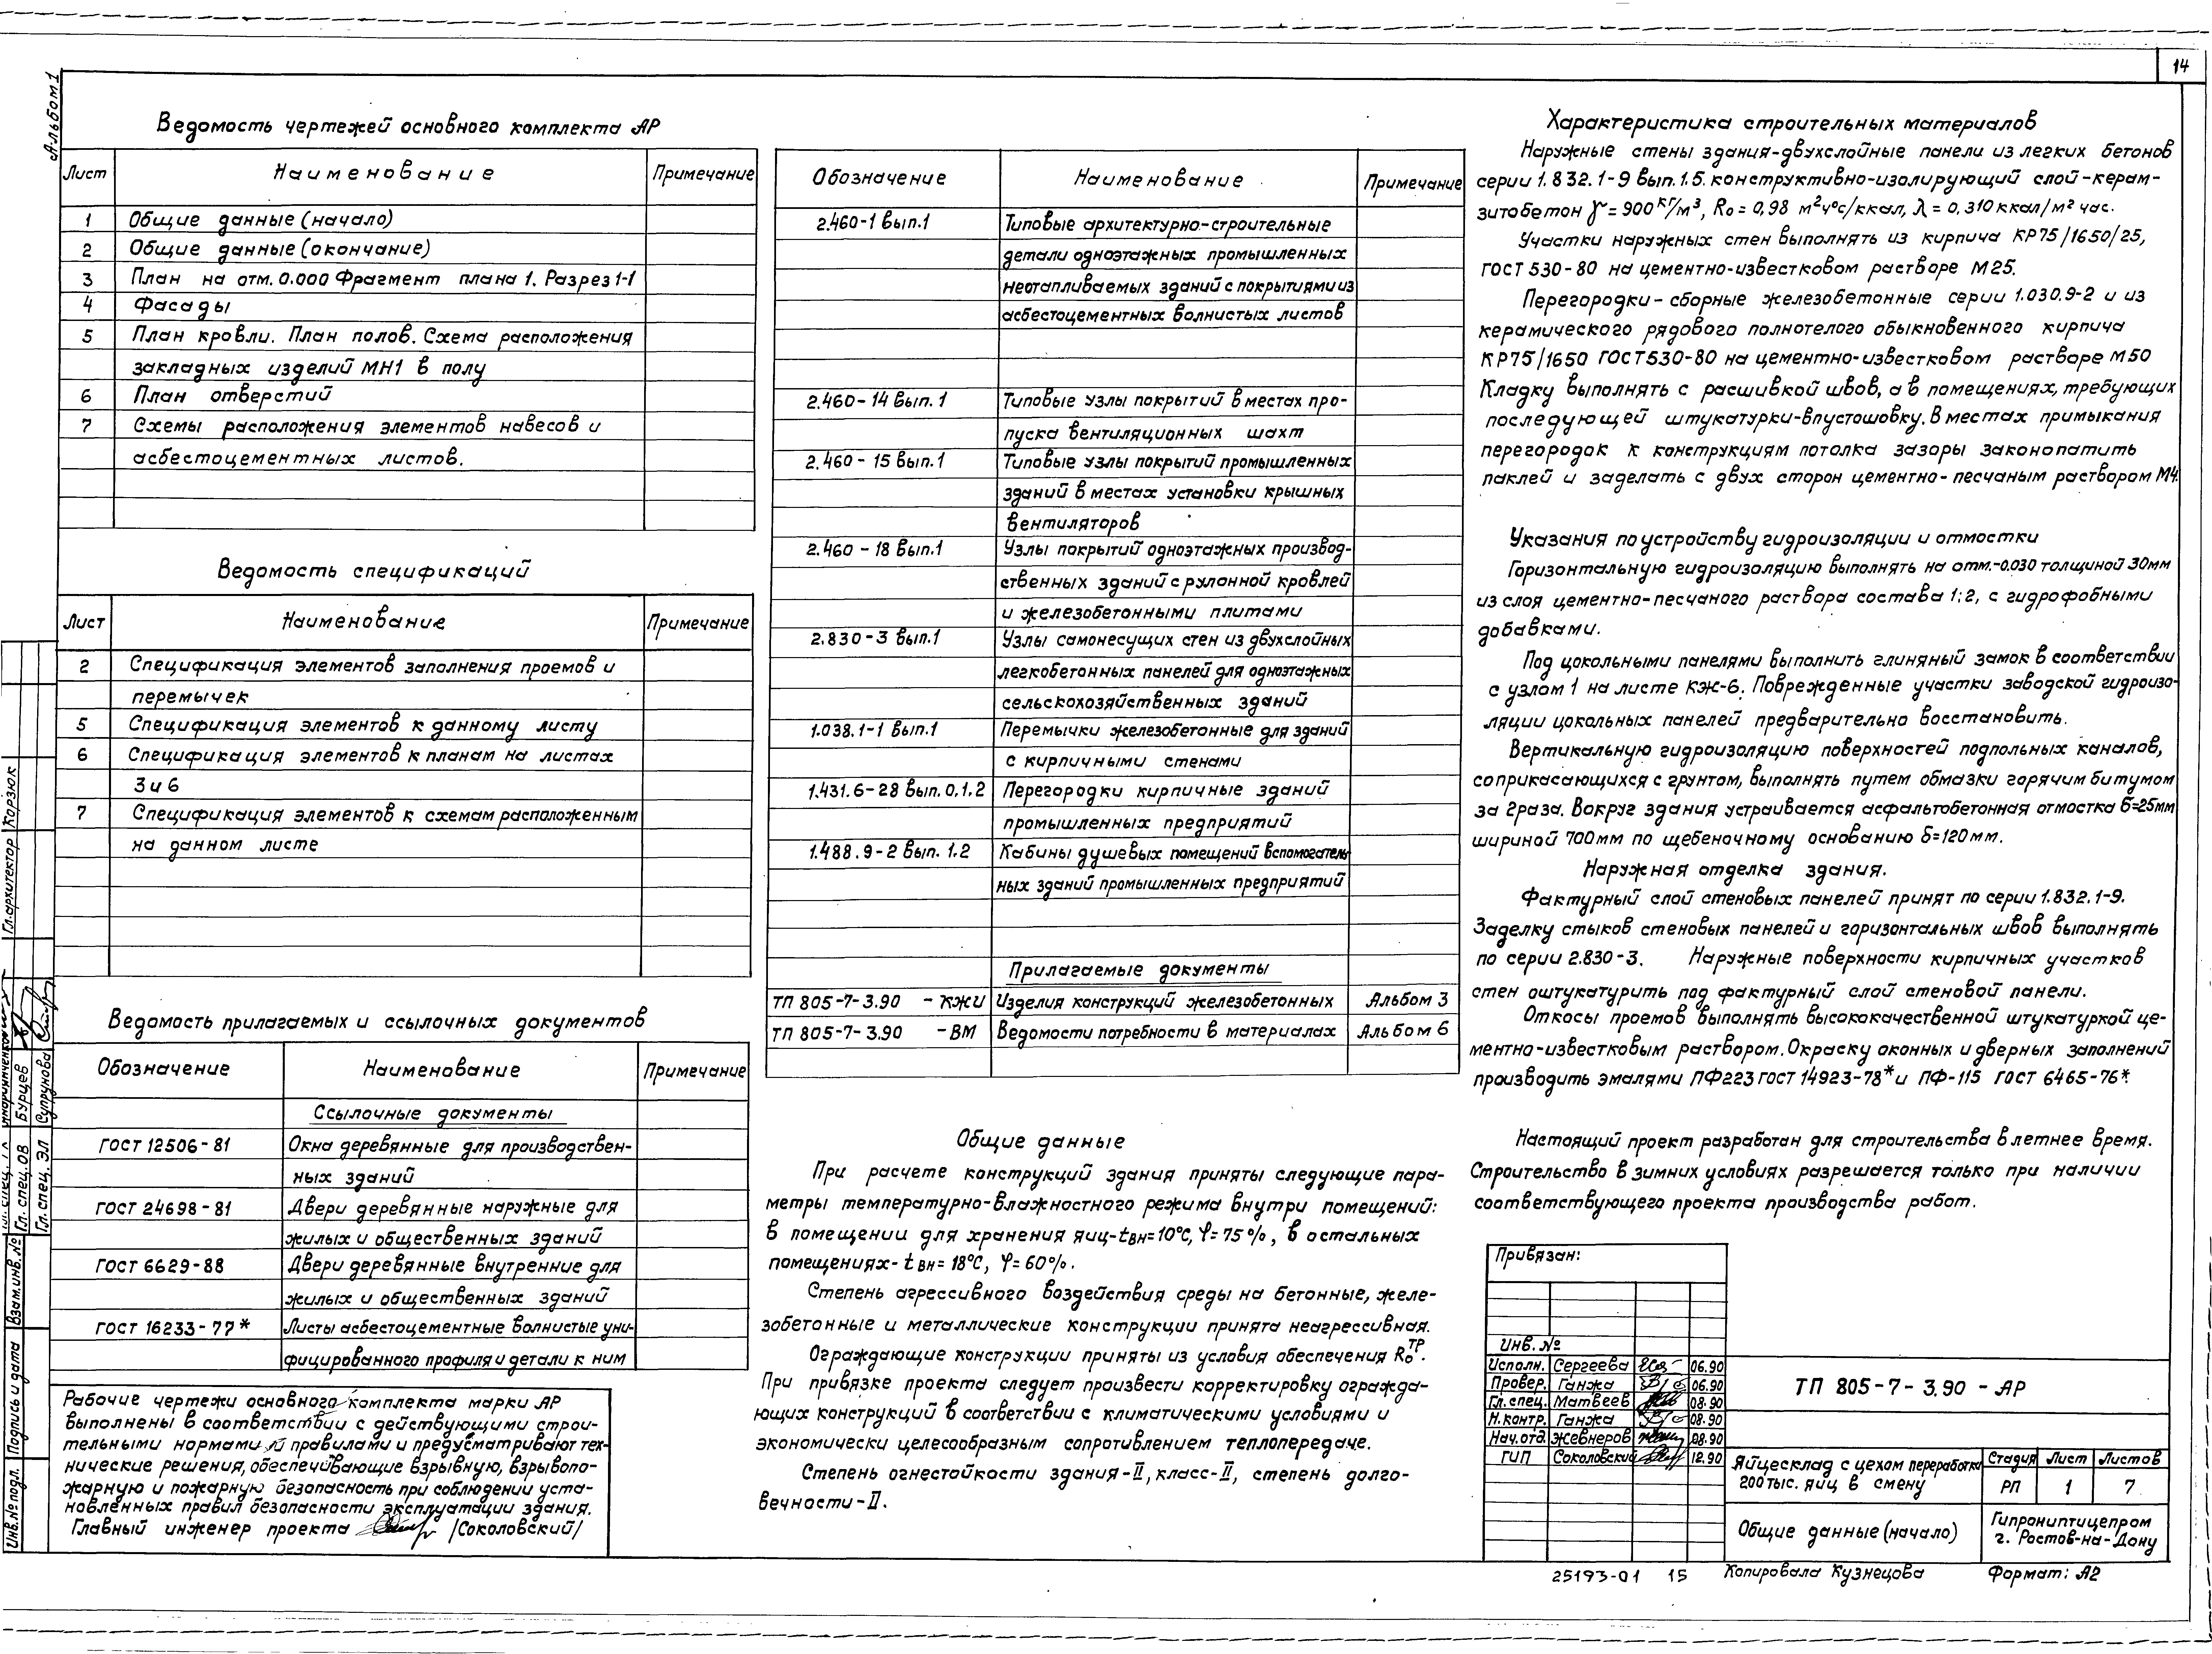 14
Альбом 1
Ведомость чертежей основного комплекта АР
Лист Наименование Примечание
1 Общие данные (начало)
2 Общие данные (окончание)
3 План на отм. 0.000 Фрагмент плана 1. Разрез 1-1
4 Фасады
5 План кровли. План полов. Схема расположения
закладных изделий МН1 в полу
6 План отверстий
7 Схемы расположения элементов навесов и
асбестоцементных листов.
Ведомость спецификаций
Лист Наименование Примечание
2 Спецификация элементов заполнения проемов и
перемычек
5 Спецификация элементов к данному листу
6 Спецификация элементов к планам на листах
3 и 6
7 Спецификация элементов к схемам расположенным
на данном листе
Ведомость прилагаемых и ссылочных документов
Обозначение Наименование Примечание
Ссылочные документы
ГОСТ 12506-81 Окна деревянные для производствен-
ных зданий
ГОСТ 24698-81 Двери деревянные наружные для
жилых и общественных зданий
ГОСТ 6629-88 Двери деревянные внутренние для
жилых и общественных зданий
ГОСТ 16233-77* Листы асбестоцементные волнистые уни-
фицированного профиля и детали к ним
Рабочие чертежи основного комплекта марки АР
выполнены в соответствии с действующими строи-
тельными нормами и правилами и предусматривают тех-
нические решения, обеспечивающие взрывную, взрывопо-
жарную и пожарную безопасность при соблюдении уста-
новленных правил безопасности эксплуатации здания.
Главный инженер проекта /Соколовский/
Обозначение Наименование Примечание
2.460-1 вып.1 Типовые архитектурно-строительные
детали одноэтажных промышленных
неотапливаемых зданий с покрытиями из
асбестоцементных волнистых листов
2.460-14 вып. 1 Типовые узлы покрытий в местах про-
пуска вентиляционных шахт
2.460-15 вып.1 Типовые узлы покрытий промышленных
зданий в местах установки крышных
вентиляторов
2.460-18 вып.1 Узлы покрытий одноэтажных производ-
ственных зданий с рулонной кровлей
и железобетонными плитами
2.830-3 вып.1 Узлы самонесущих стен из двухслойных
легкобетонных панелей для одноэтажных
сельскохозяйственных зданий
1.038.1-1 вып.1 Перемычки железобетонные для зданий
с кирпичными стенами
1.431.6-28 вып. 0,1,2 Перегородки кирпичные зданий
промышленных предприятий
1.488.9-2 вып. 1.2 Кабины душевых помещений вспомогатель-
ных зданий промышленных предприятий
Прилагаемые документы
ТП 805-7-3.90 -КЖИ Изделия конструкций железобетонных Альбом 3
ТП 805-7-3.90 -ВМ Ведомости потребности в материалах Альбом 6
Общие данные
При расчете конструкций здания приняты следующие пара-
метры температурно-влажностного режима внутри помещений:
в помещении для хранения яиц-tвн=10°С, φ=75%, в остальных
помещениях-tвн=18°С, φ=60%.
Степень агрессивного воздействия среды на бетонные, желе-
зобетонные и металлические конструкции принята неагрессивная.
Ограждающие конструкции приняты из условия обеспечения Rₒᵀᴾ.
При привязке проекта следует произвести корректировку огражда-
ющих конструкций в соответствии с климатическими условиями и
экономически целесообразным сопротивлением теплопередаче.
Степень огнестойкости здания-II, класс-II, степень долго-
вечности-II.
Характеристика строительных материалов
Наружные стены здания-двухслойные панели из легких бетонов
серии 1.832.1-9 вып.1.5. конструктивно-изолирующий слой-керам-
зитобетон γ=900кг/м³, Rо=0,98 м²ч°с/ккал, λ=0,310ккал/м² час.
Участки наружных стен выполнять из кирпича КР75/1650/25,
ГОСТ 530-80 на цементно-известковом растворе М25.
Перегородки-сборные железобетонные серии 1.030.9-2 и из
керамического рядового полнотелого обыкновенного кирпича
КР75/1650 ГОСТ530-80 на цементно-известковом растворе М50
Кладку выполнять с расшивкой швов, а в помещениях, требующих
последующей штукатурки-впустошовку. В местах примыкания
перегородок к конструкциям потолка зазоры законопатить
паклей и заделать с двух сторон цементно-песчаным раствором М4.
Указания по устройству гидроизоляции и отмостки
Горизонтальную гидроизоляцию выполнять на отм.-0.030 толщиной 30мм
из слоя цементно-песчаного раствора состава 1:2, с гидрофобными
добавками.
Под цокольными панелями выполнить глиняный замок в соответствии
с узлом 1 на листе КЖ-6. Поврежденные участки заводской гидроизо-
ляции цокольных панелей предварительно восстановить.
Вертикальную гидроизоляцию поверхностей подпольных каналов,
соприкасающихся с грунтом, выполнять путем обмазки горячим битумом
за 2раза. Вокруг здания устраивается асфальтобетонная отмостка б=25мм
шириной 700мм по щебеночному основанию б=120мм.
Наружная отделка здания.
Фактурный слой стеновых панелей принят по серии 1.832.1-9.
Заделку стыков стеновых панелей и горизонтальных швов выполнять
по серии 2.830-3. Наружные поверхности кирпичных участков
стен оштукатурить под фактурный слой стеновой панели.
Откосы проемов выполнять высококачественной штукатуркой це-
ментно-известковым раствором. Окраску оконных и дверных заполнений
производить эмалями ПФ223 ГОСТ 14923-78* и ПФ-115 ГОСТ 6465-76*.
Настоящий проект разработан для строительства в летнее время.
Строительство в зимних условиях разрешается только при наличии
соответствующего проекта производства работ.
Привязан:
Инв. №
Исполн. Сергеева 06.90
Провер. Ганжа 06.90
Гл.спец. Матвеев 08.90
Н.контр. Ганжа 08.90
Нач.отд. Жевнеров 08.90
ГИП Соколовский 12.90
ТП 805-7-3.90 -АР
Яйцесклад с цехом переработки
200 тыс. яиц в смену
Стадия Лист Листов
РП 1 7
Общие данные (начало)
Гипрониптицепром
г. Ростов-на-Дону
25193-01 15 Копировала Кузнецова Формат: А2
Гл.архитектор Корзюк
Гл. спец. ОВ Бурцев
Гл. спец. ЭЛ Супрунова
Взам.инв.№
Подпись и дата
Инв.№ подл.